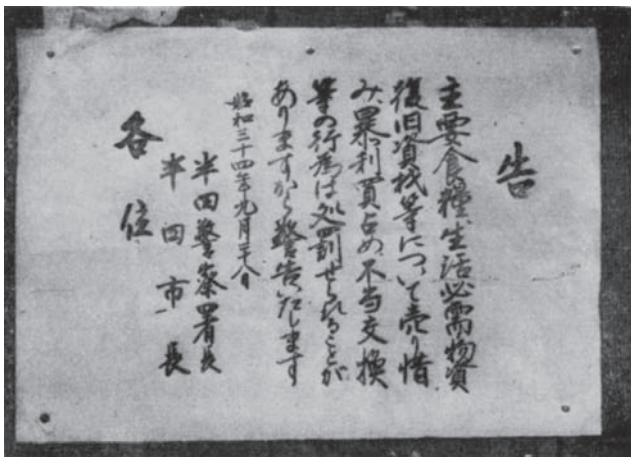 告
主要食糧、生活必需物資
復旧資材等について売り惜
み、暴利買占め、不当交換
等の行為は処罰せられることが
ありますから警告いたします
昭和三十四年九月二十八日
半田警察署長
半田市長
各位